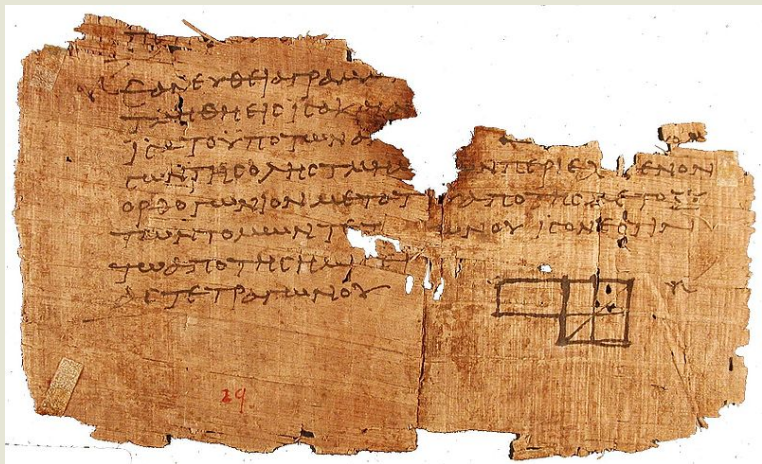 ΕΑΝ ΕΥΘΕΙΑ ΓΡΑΜΜ
ΤΜΗΘΗ ΕΙϹ ΙϹΑ ΚΑΙ
ΙϹΑ ΤΟ ΥΠΟ ΤΩΝ Α
ϹΩΝ ΤΗϹ ΟΛΗϹ ΤΜΗΜΑ ΩΝ ΠΕΡΙΕΧ ΜΕΝΟΝ
ΟΡΘΟΓΩΝΙΟΝ ΜΕΤΑ ΤΟΥ ΑΠΟ ΤΗϹ ΜΕΤΟΞΥ
ΤΩΝ ΤΟΜΩΝ ΤΕΤ ΩΝΟΥ ΙϹΟΝ ΕϹΤΙΝ
ΤΩ ΑΠΟ ΤΗϹ ΗΜΙϹΕΙ
ΑϹ ΤΕΤΡΑΓΩΝΟΥ
29